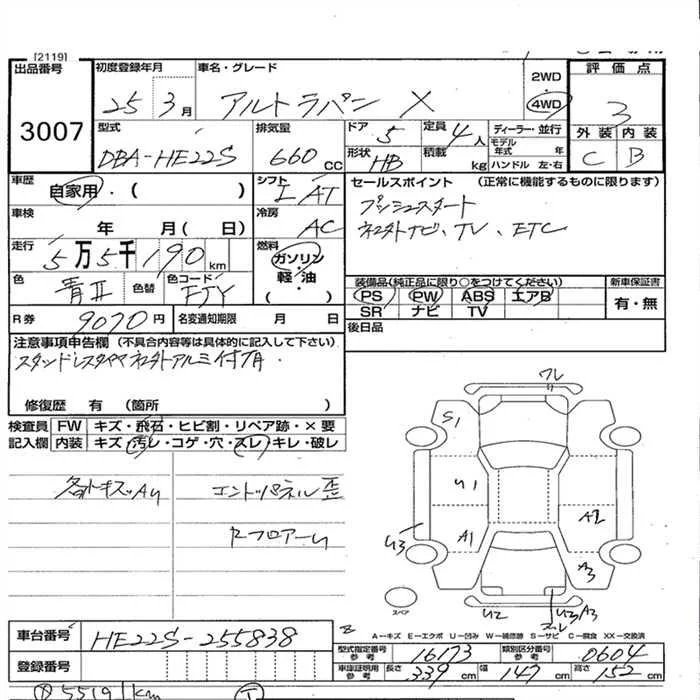 [2119]
出品番号
3007
初度登録年月
25 3月
車名・グレード
アルトラパン X
2WD
4WD
評価点
3
外装 内装
C B
型式
DBA-HE22S
排気量
660 CC
ドア 5
形状 HB
定員 4人
積載 kg
ディーラー・並行
モデル年式 年
ハンドル 左・右
車歴
自家用・( )
シフト
I AT
セールスポイント (正常に機能するものに限ります)
プッシュスタート
ネエトナビ、TV、ETC
車検
年 月( 日)
冷房
AC
走行
5万5千190km
燃料
ガソリン
軽・油
( )
色
青II
色替
色コード
装備品(純正品に限り○をつけてください)
PS PW ABS エアB
SR ナビ TV
新車保証書
有・無
R券 9070円
名変通知期限 月 日
後日品
注意事項申告欄 (不具合内容等は具体的に記入して下さい)
スタッドレスタイヤ ネエトアルミ付有.
修復歴 有 (箇所 )
検査員 FW キズ・飛石・ヒビ割・リペア跡・×要
記入欄 内装 キズ・汚レ・コゲ・穴・スレ・キレ・破レ
各部キズAU
エンドパネル歪
フロアーU
ワレ
S1
U1
A1
U3
A2
A3
U2
U3 A3
スペア
A−キズ E−エクボ U−凹み W−補修跡 S−サビ C−腐食 XX−交換済
車台番号
HE22S-255838
登録番号
型式指定番号 参考 16173
類別区分番号 参考 0604
車庫証明用 参考 長さ 339 cm 幅 147 cm 高さ 152 cm